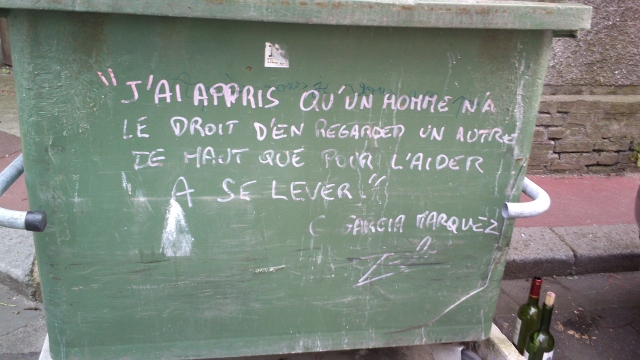 "J'AI APPRIS QU'UN HOMME N'A
LE DROIT D'EN REGARDER UN AUTRE
DE HAUT QUE POUR L'AIDER
A SE LEVER."
G GARCIA MARQUEZ